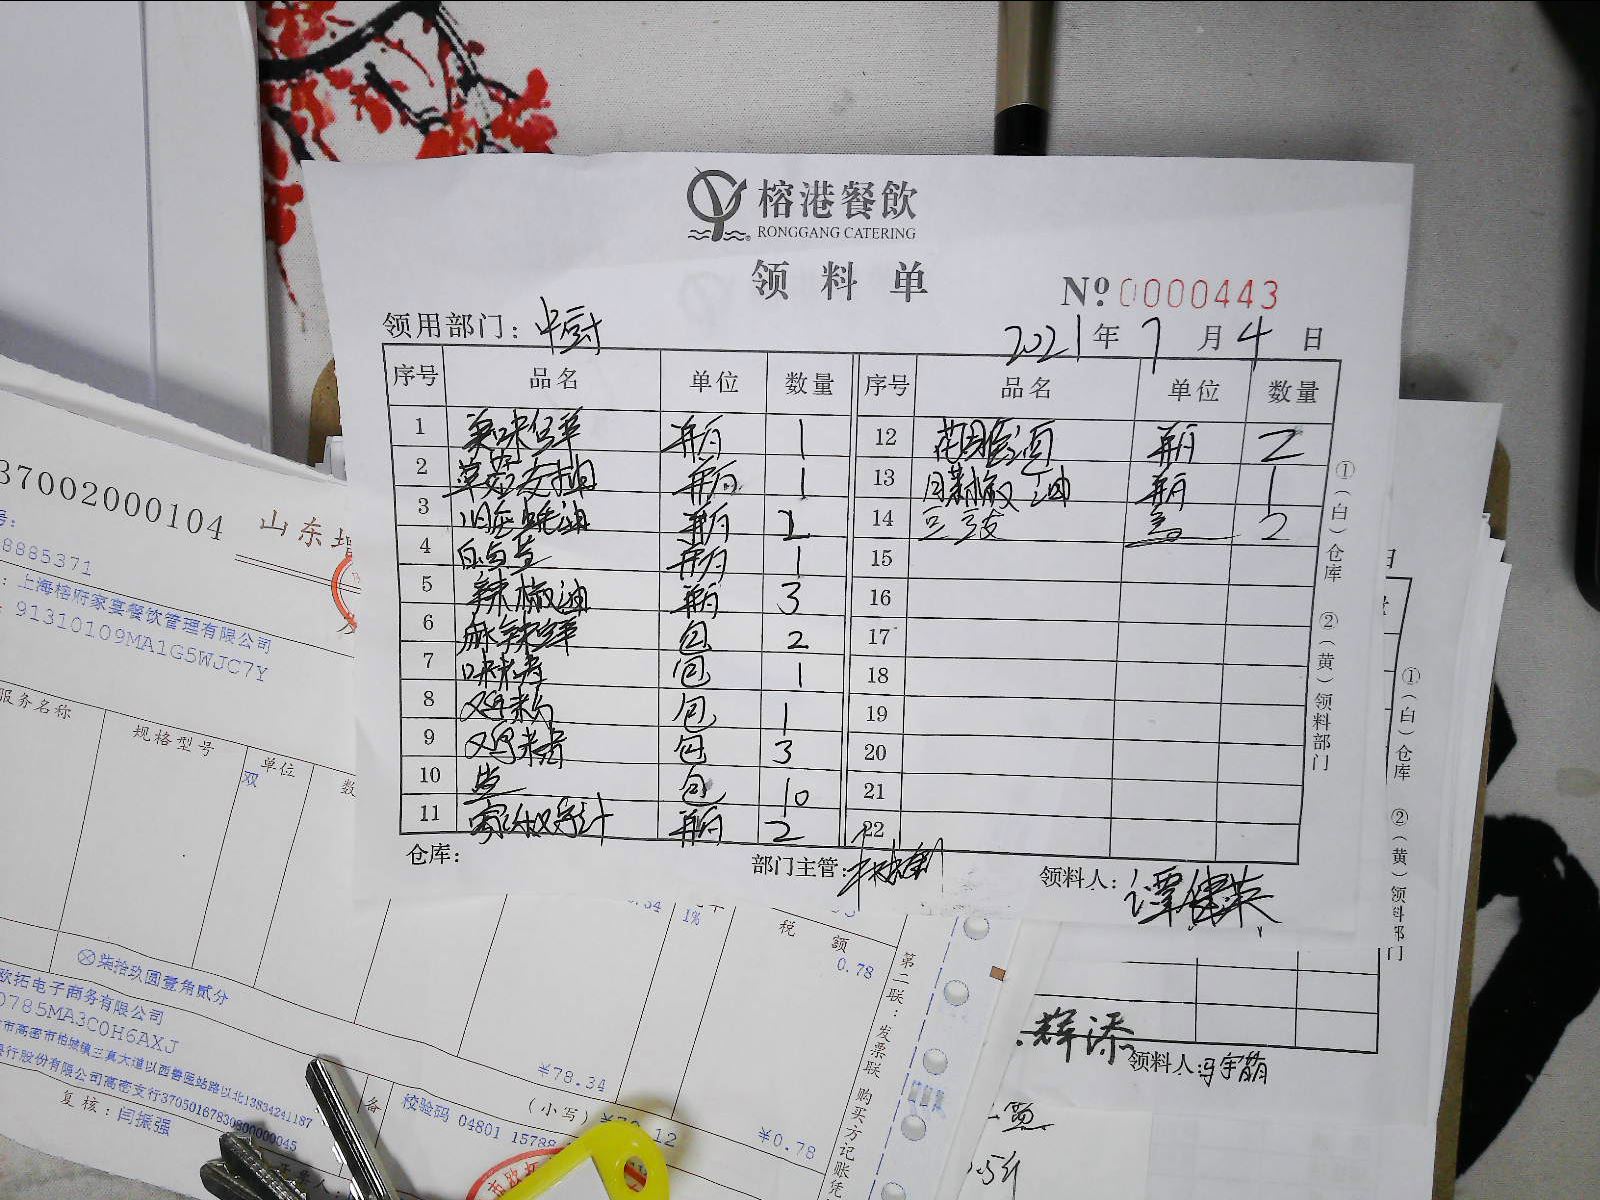 榕港餐飲
RONGGANG CATERING
领料单
Nº 0000443
领用部门: 中厨
2021年7月4日
序号 品名 单位 数量 序号 品名 单位 数量
1 美味鲜 瓶 1 12 花雕酒 瓶 2
2 草菇老抽 瓶 1 13 藤椒油 瓶 1
3 旧庄蚝油 瓶 2 14 豆豉 2
4 瓶 1 15
5 辣椒油 瓶 3 16
6 麻辣鲜 包 2 17
7 味精 包 1 18
8 鸡粉 包 1 19
9 鸡精 包 3 20
10 盐 包 10 21
11 瓶 2 22
仓库: 部门主管: 领料人: 谭健英
①(白)仓库 ②(黄)领料部门
①(白)仓库 ②(黄)领料部门
领料人:
37002000104 山东增
8885371
上海榕府家宴餐饮管理有限公司
91310109MA1G5WJC7Y
服务名称 规格型号 单位 数
双
1%
税 额
0.78
⊗柒拾玖圆壹角贰分
¥78.34
(小写)
¥0.78
欧拓电子商务有限公司
0785MA3C0H6AXJ
市高密市柏城镇三真大道以西兽医站路以北13834241187
银行股份有限公司高密支行37050167830800000045
复核: 闫振强
备
校验码 04801 15788
第二联:发票联 购买方记账凭